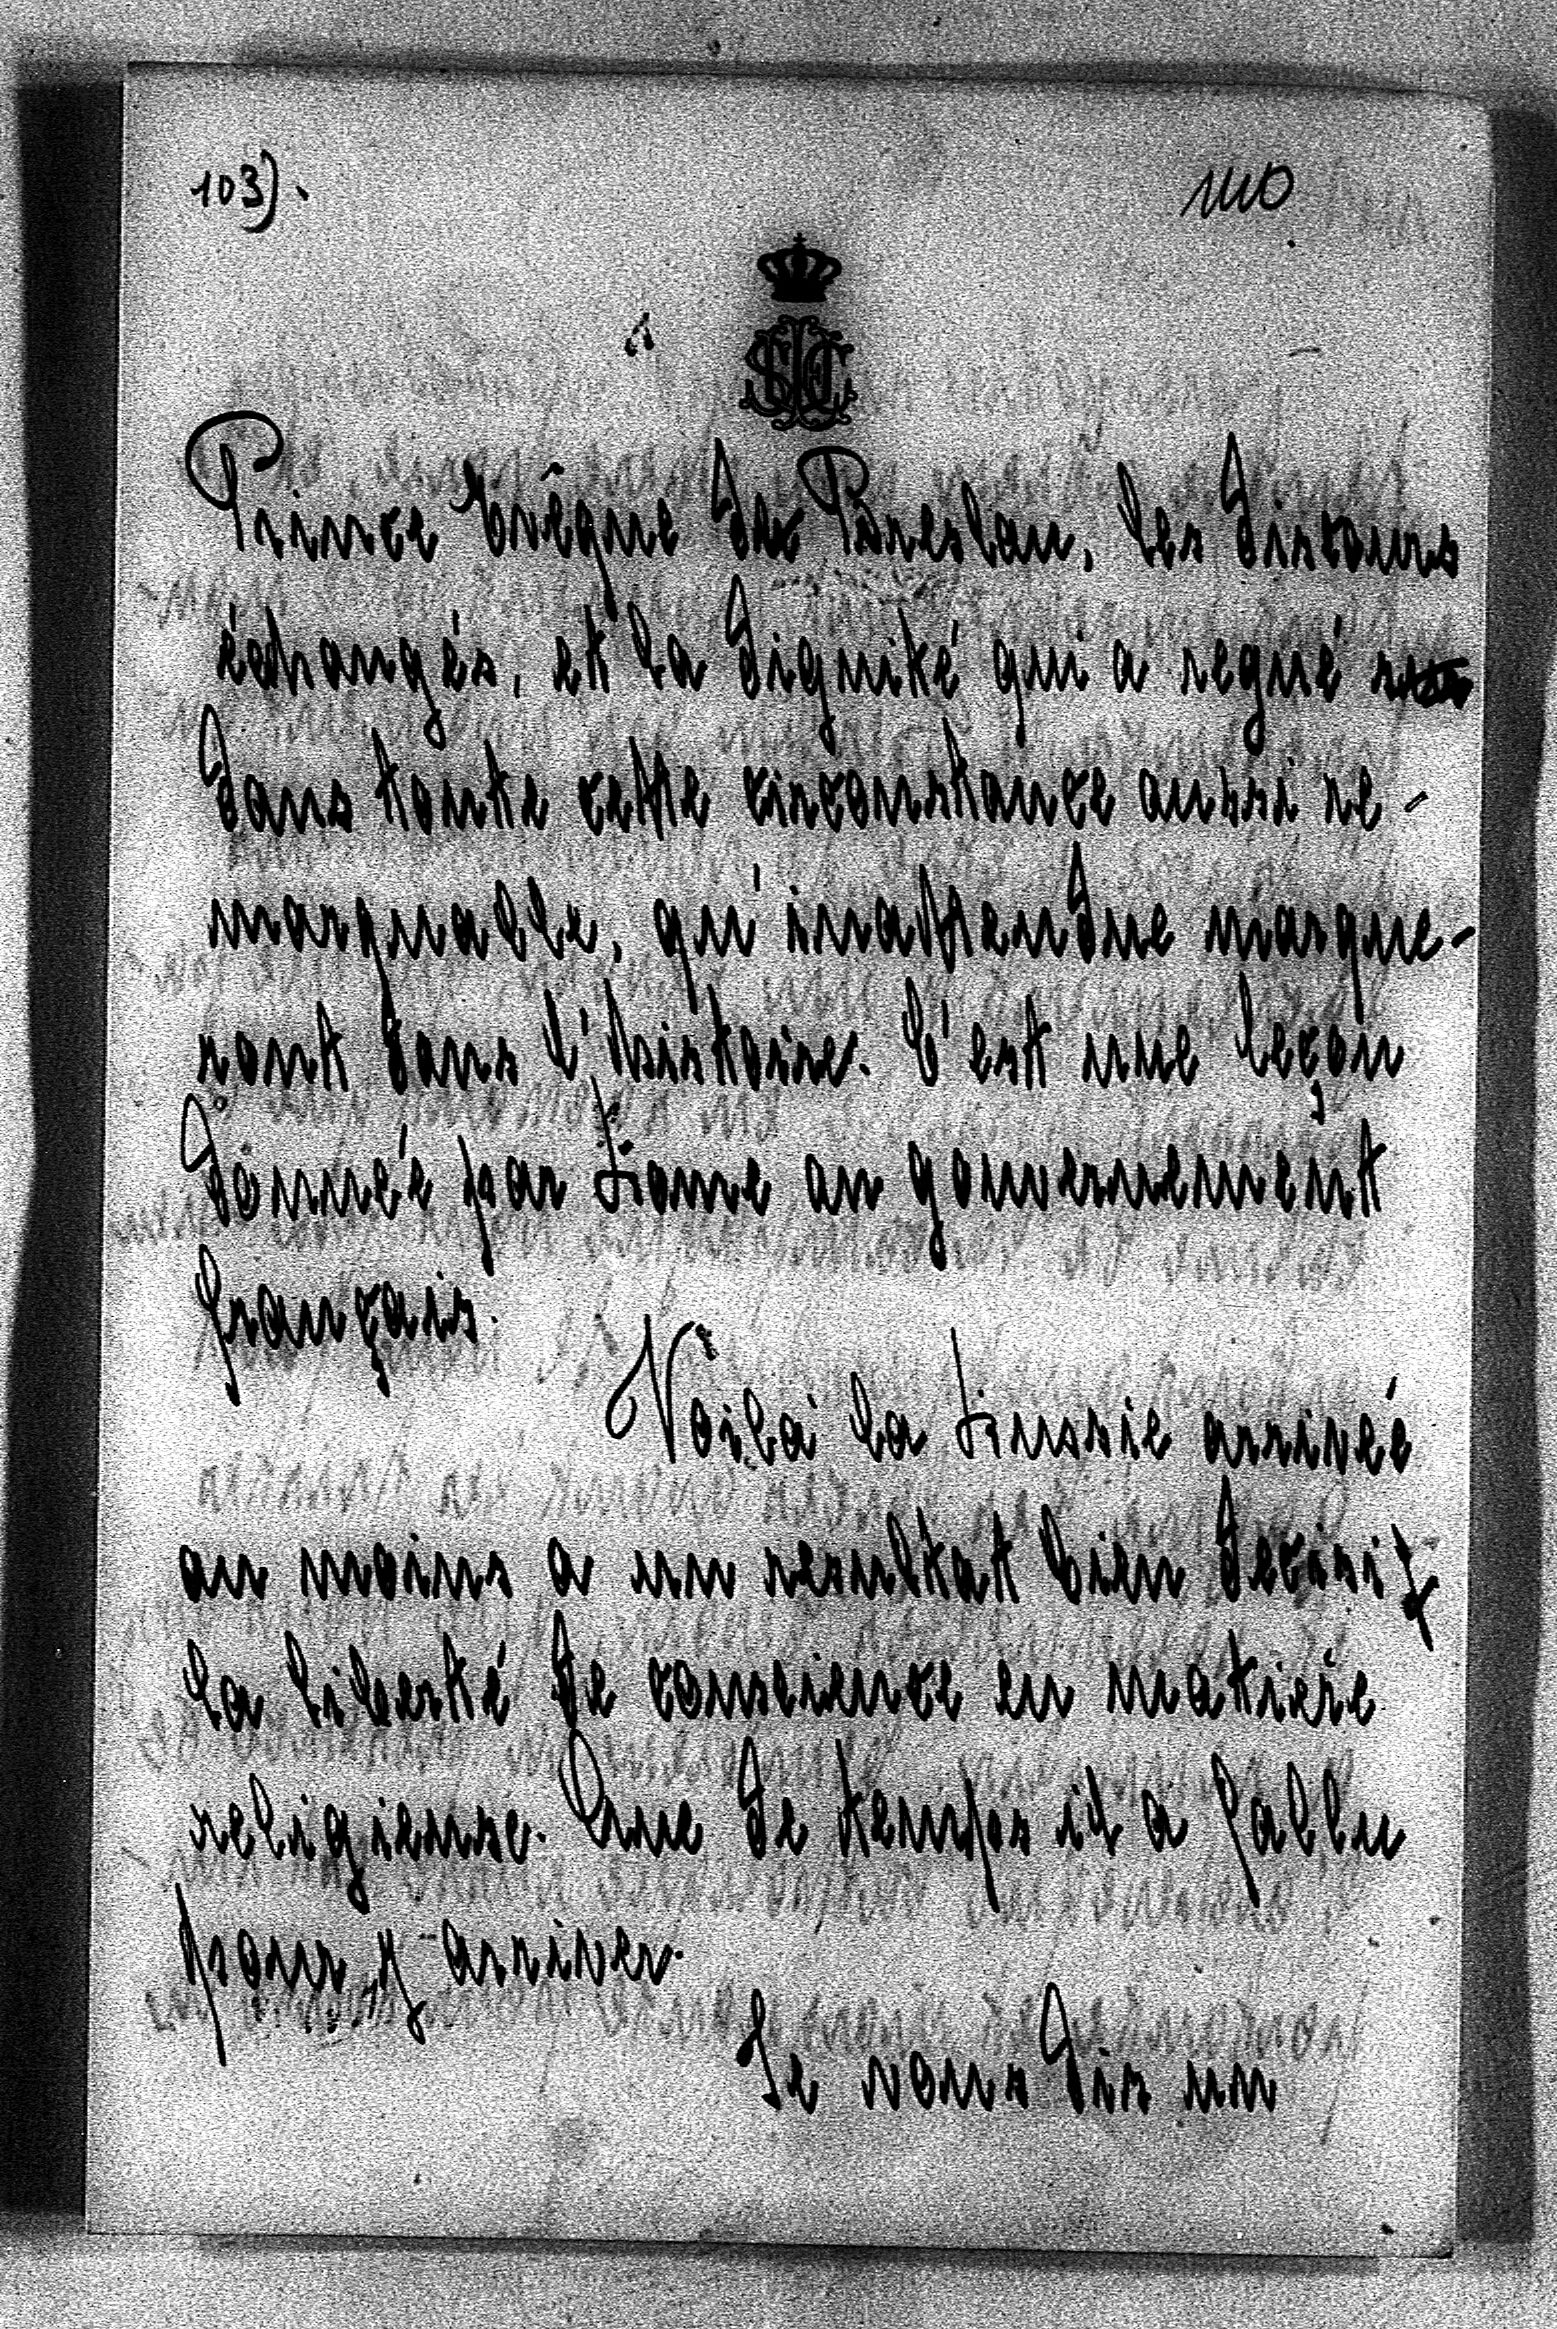 103).
Prince Evêque de Breslau, les discours
échangés, et la dignité qui a regné
dans toute cette circonstance aussi re-
marquable, qu'inattendue marque-
ront dans l'histoire. C'est une leçon
donnée par Rome au gouvernement
français.
Voilà la Russie arrivée
au moins a un resultat bien decisif
la liberté de conscience en matière
religieuse. Que de temps il a fallu
pour y arriver.
Je vous dis un